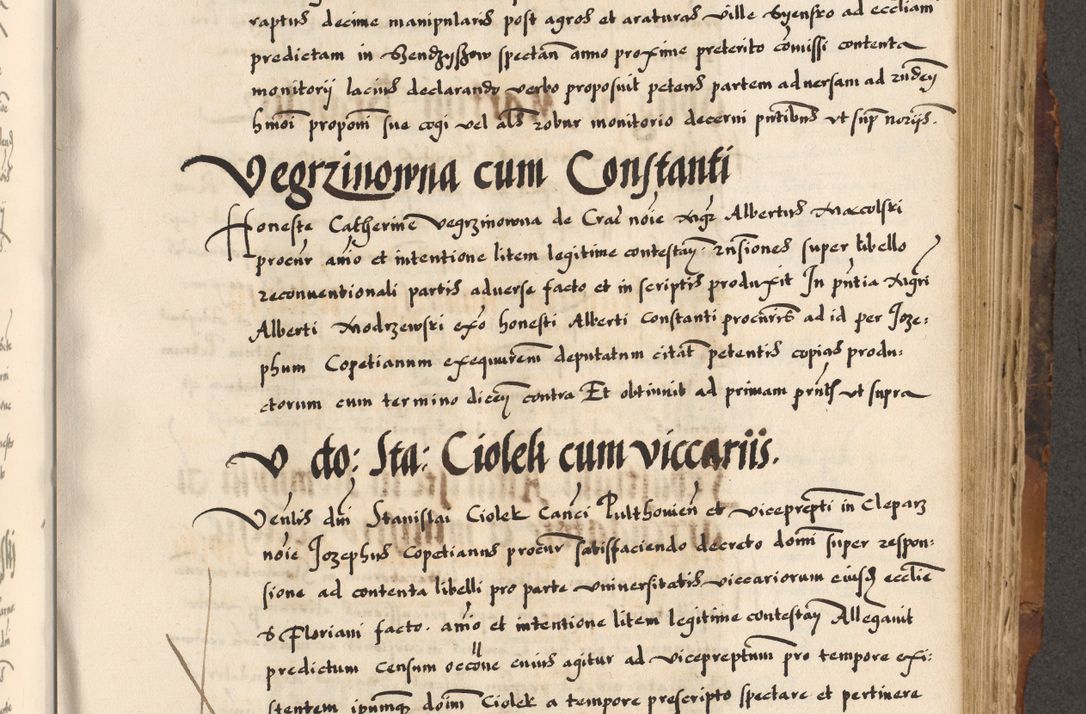 raptus decime manipularis post agros et araturas ville Syensko ad eccliam
predictam in Sendzyszow spectan̄ anno proxime preterito cōmissi contenta
monitorij lacius declarando verbo proposuit petens partem adversam ad rn̄den̄
hmōi proponi sue cogi vel al̄s robur monitorio decerni pn̄tibus vt sup̄ notrijs.
Vegrzinowna cum Constanti
Honeste Catherine Vegrzinowna de Crac̄ noīe mgr̄ Albertus Maccolski
procur̄ aīo et intentione litem legitime contestan̄. rn̄siones super libello
reconuentionali partis adverse facto et in scriptis produxit In pn̄tia Mgri
Alberti Modrzewski ex̄o honesti Alberti Constanti procuris ad id per Joze:
phum Copetianum exequutorem deputatum citat̄ petentis copias produ:
ctorum cum termino dicen̄ contra Et obtinuit ad primam prn̄tis vt supra
V do: Sta: Ciolek cum viccariis.
Venlis dn̄i Stanislai Ciolek Can̄ci Pulthouien̄ et viceprepti in Clepar̄
noīe Jozephus Copetianus procur̄ satisfaciendo decreto domī super respon:
sione ad contenta libelli pro parte vniuersitatis viccariorum eiusd̄ ecclie
S Floriani facto. aīo et intentione litem legitime contestan̄ Allegauit
predictum censum occōne cuius agitur ad vicepreptum pro tempore exi:
stentem ipumq̄ dom̄ Ciolek a tempore prescripto spectare et pertinere